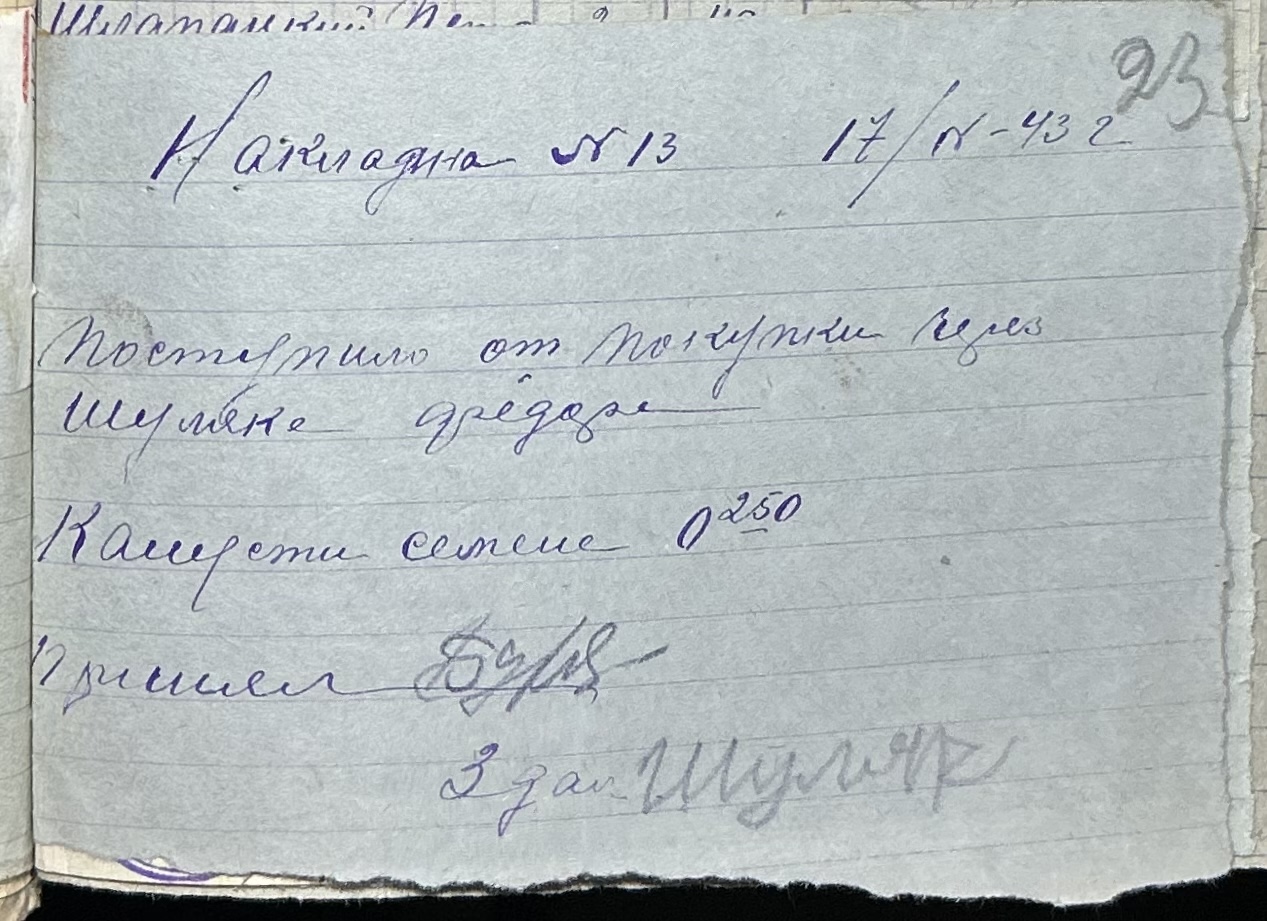 23
Накладна № 13 17/IV-43 г
Поступило от покупки через
Шуляке Фёдора
Капусти семене 0 250
Принял
Здал Шуляк